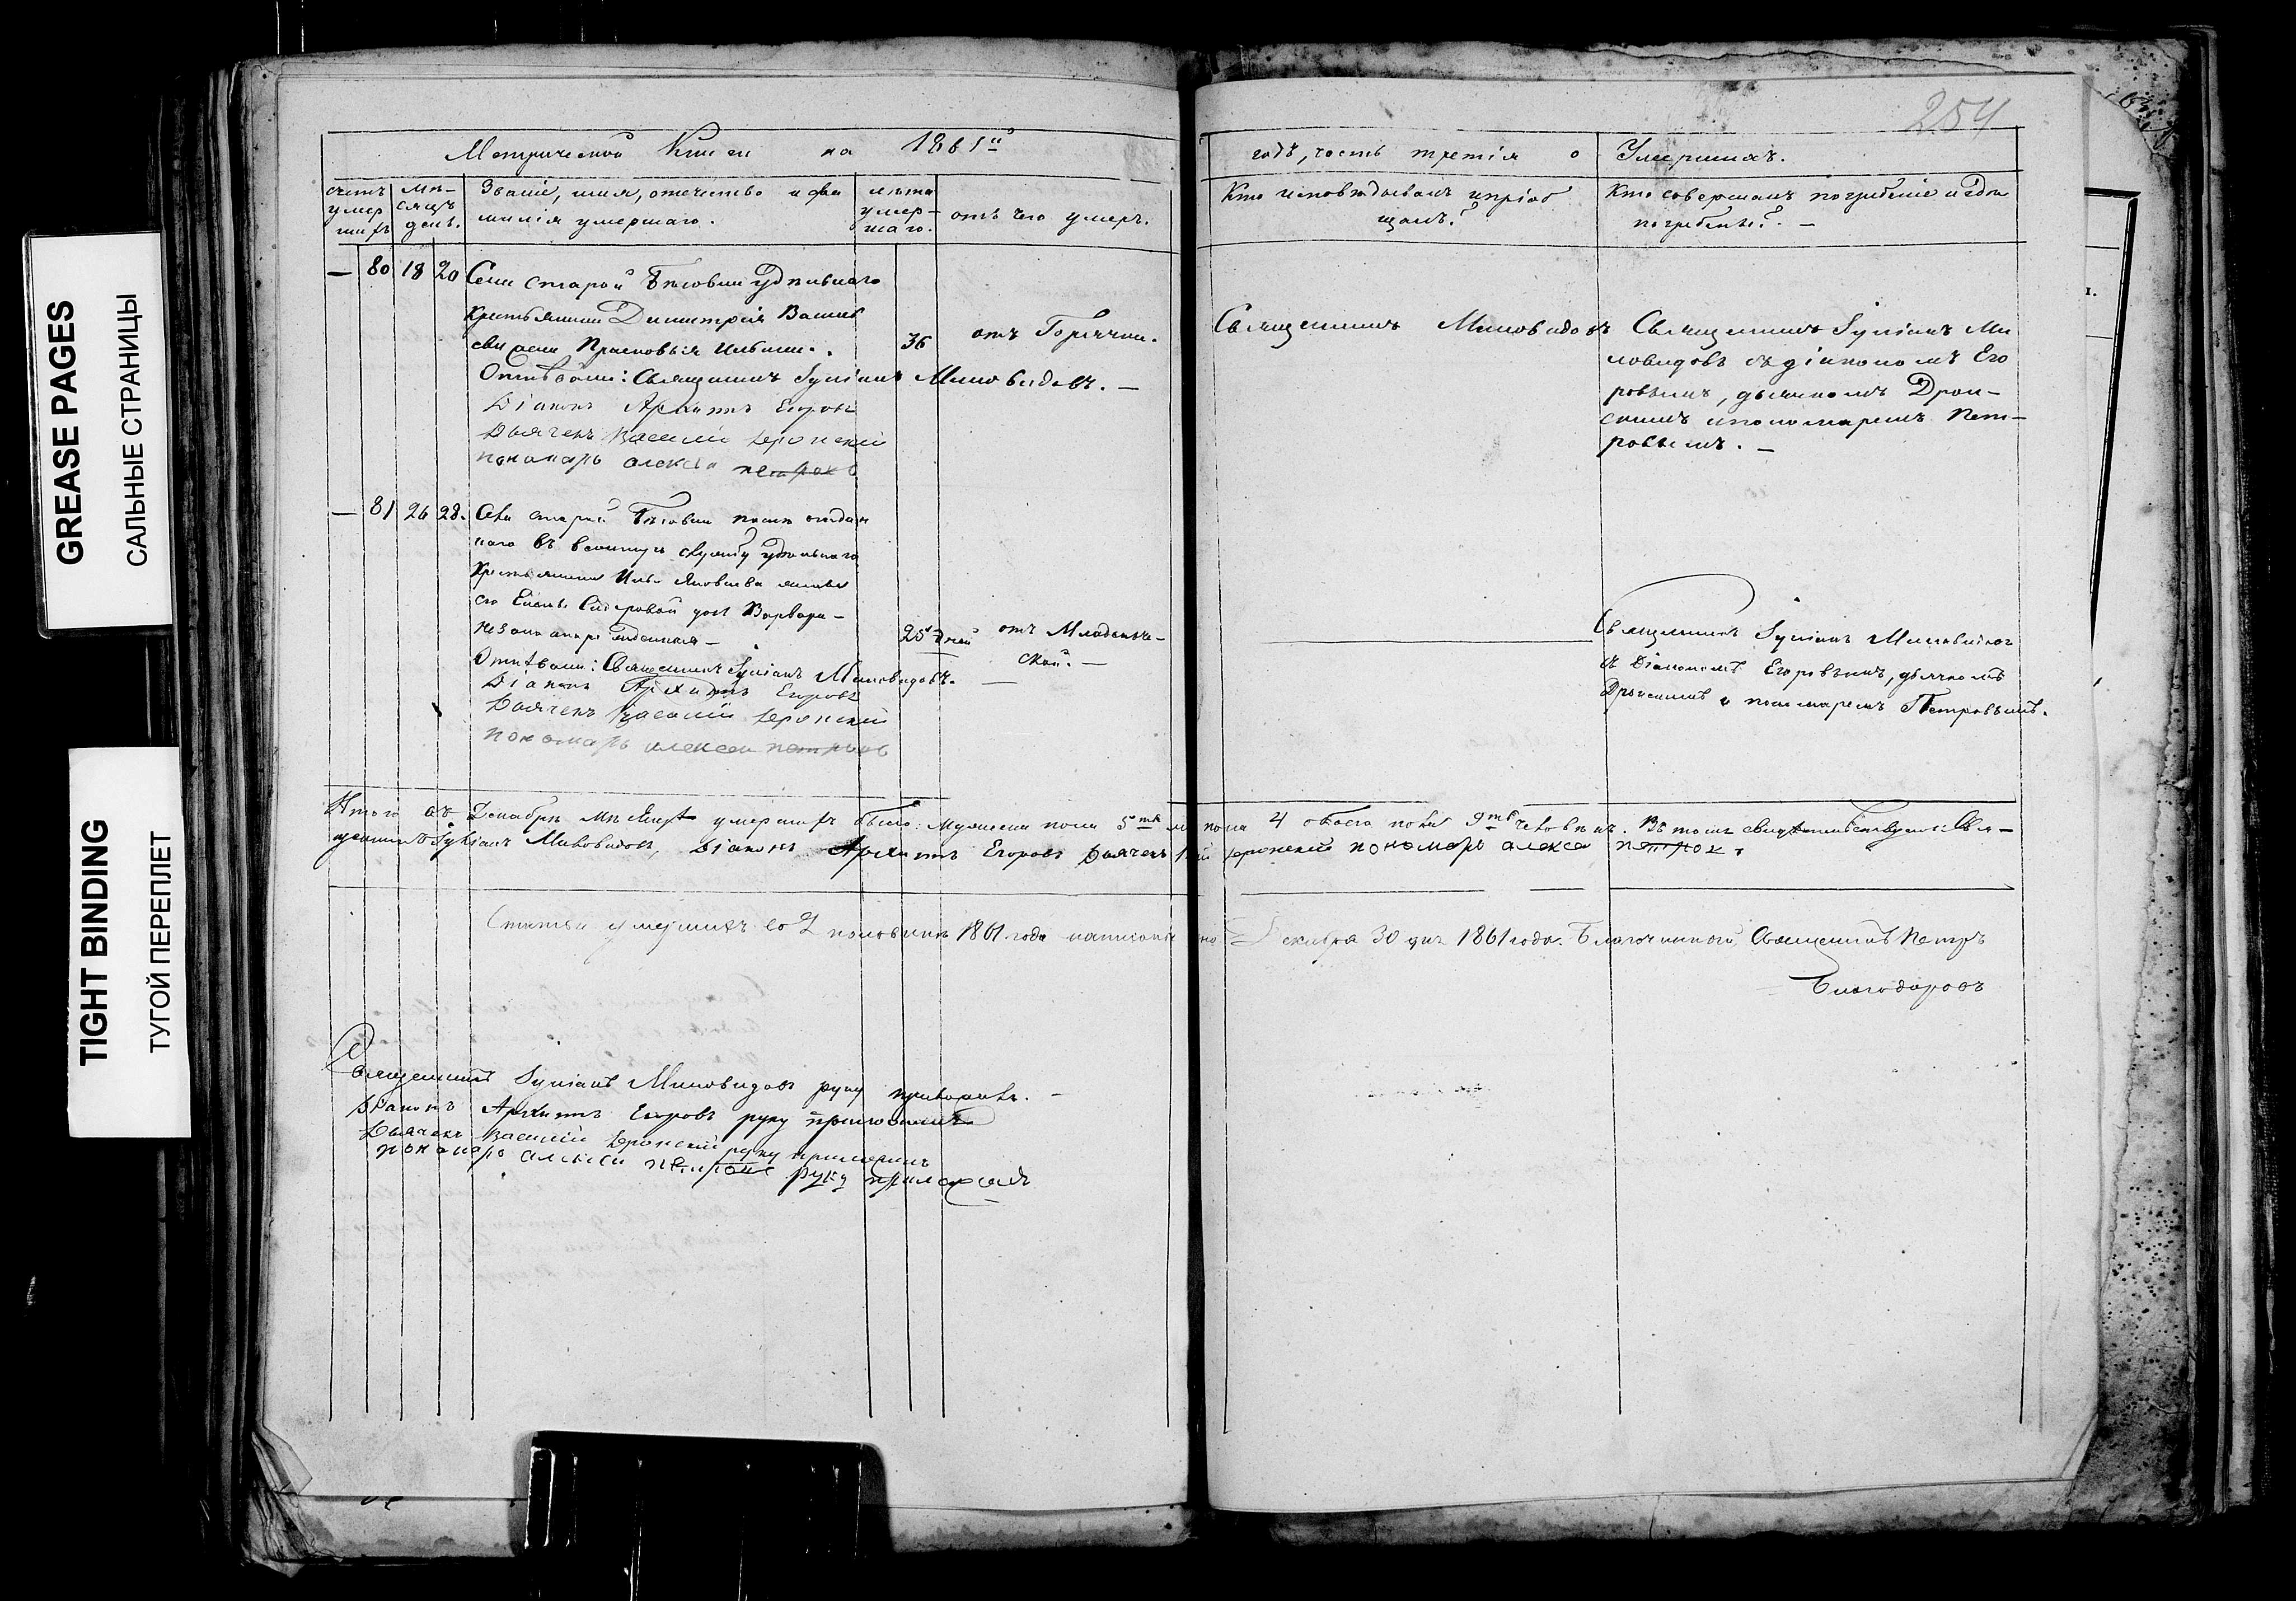 GREASE PAGES
САЛЬНЫЕ СТРАНИЦЫ
TIGHT BINDING
ТУГОЙ ПЕРЕПЛЕТ
254
Метрической Книги на 1861й
годъ, часть третія о Умершихъ.
счетъ умер шихъ
мѣ-сяцъ день.
Званіе, имя, отечество и фа
милія умершаго.
лѣта умер-шаго.
отъ чего умеръ.
Кто исповѣдывалъ и пріоб
щалъ?
Кто совершалъ погребеніе и гдѣ
погребены? —
— 80 18 20 Села Старой удѣльнаго
Крестьянина Димитрія
жена Прасковья
36
отъ Горячки.
Отпѣвали: Священникъ Іуліанъ Миловидовъ. —
Діаконъ Архиппъ Егоровъ
Дьячекъ Василій Дронскій
пономарь алексѣй петровъ
Священникъ Миловидовъ
Священникъ Іуліанъ Ми
ловидовъ съ діакономъ Его
ровымъ, дьячкомъ Дрон-
скимъ и пономаремъ Пет-
ровымъ. —
— 81 26 28. Села старой
наго въ военную службу удѣльнаго
Крестьянина Ильи Яковлева жены
его Сидоровой дочь Варвара —
незаконнорожденная —
25 дней
отъ Младенче-
ской. —
Отпѣвали: Священникъ Іуліанъ Миловидовъ. —
Діаконъ Архиппъ Егоровъ
Дьячекъ Василій Дронскій
пономарь алексѣй петровъ
Священникъ Іуліанъ Миловидовъ
съ Діакономъ Егоровымъ, дьячкомъ
Дронскимъ и пономаремъ Петровымъ.
Итого въ Декабрѣ мѣсяцѣ умершихъ было: Мужеска пола 5ть пола 4 обоего пола 9ть человѣкъ. Въ томъ свидѣтельствуютъ: Свя-
щенникъ Іуліанъ Миловидовъ, Діаконъ Архиппъ Егоровъ Дьячекъ Дронскій пономарь алексѣй петровъ
Статьи умершихъ во 2 половинѣ 1861 года Декабря 30 дня 1861 года. Благочинный, Священникъ Петръ
Благодаровъ
Священникъ Іуліанъ Миловидовъ руку приложилъ. —
Діаконъ Архиппъ Егоровъ руку приложилъ
Дьячекъ Василій Дронскій руку приложилъ
пономарь алексѣй петровъ руку приложилъ